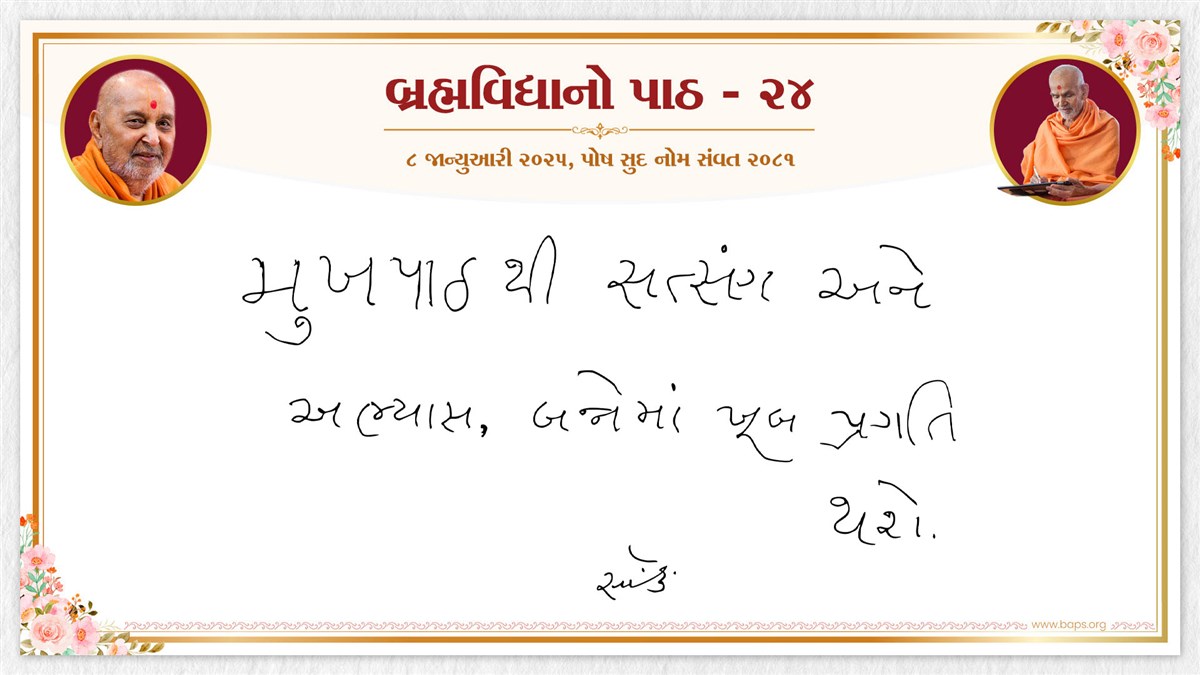 બ્રહ્મવિદ્યાનો પાઠ - ૨૪
૮ જાન્યુઆરી ૨૦૨૫, પોષ સુદ નોમ સંવત ૨૦૮૧
મુખપાઠ થી સત્સંગ અને
અભ્યાસ, બન્નેમાં ખૂબ પ્રગતિ
થશે.
www.baps.org